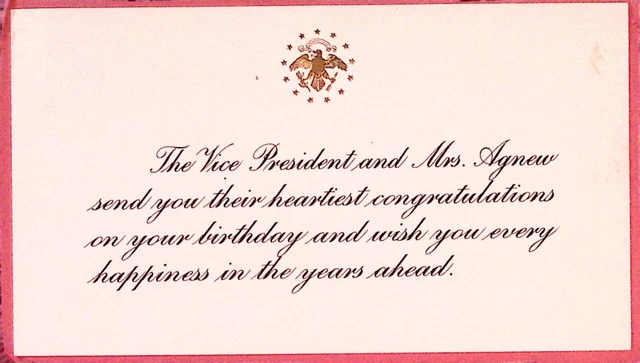 The Vice President and Mrs. Agnew
send you their heartiest congratulations
on your birthday and wish you every
happiness in the years ahead.